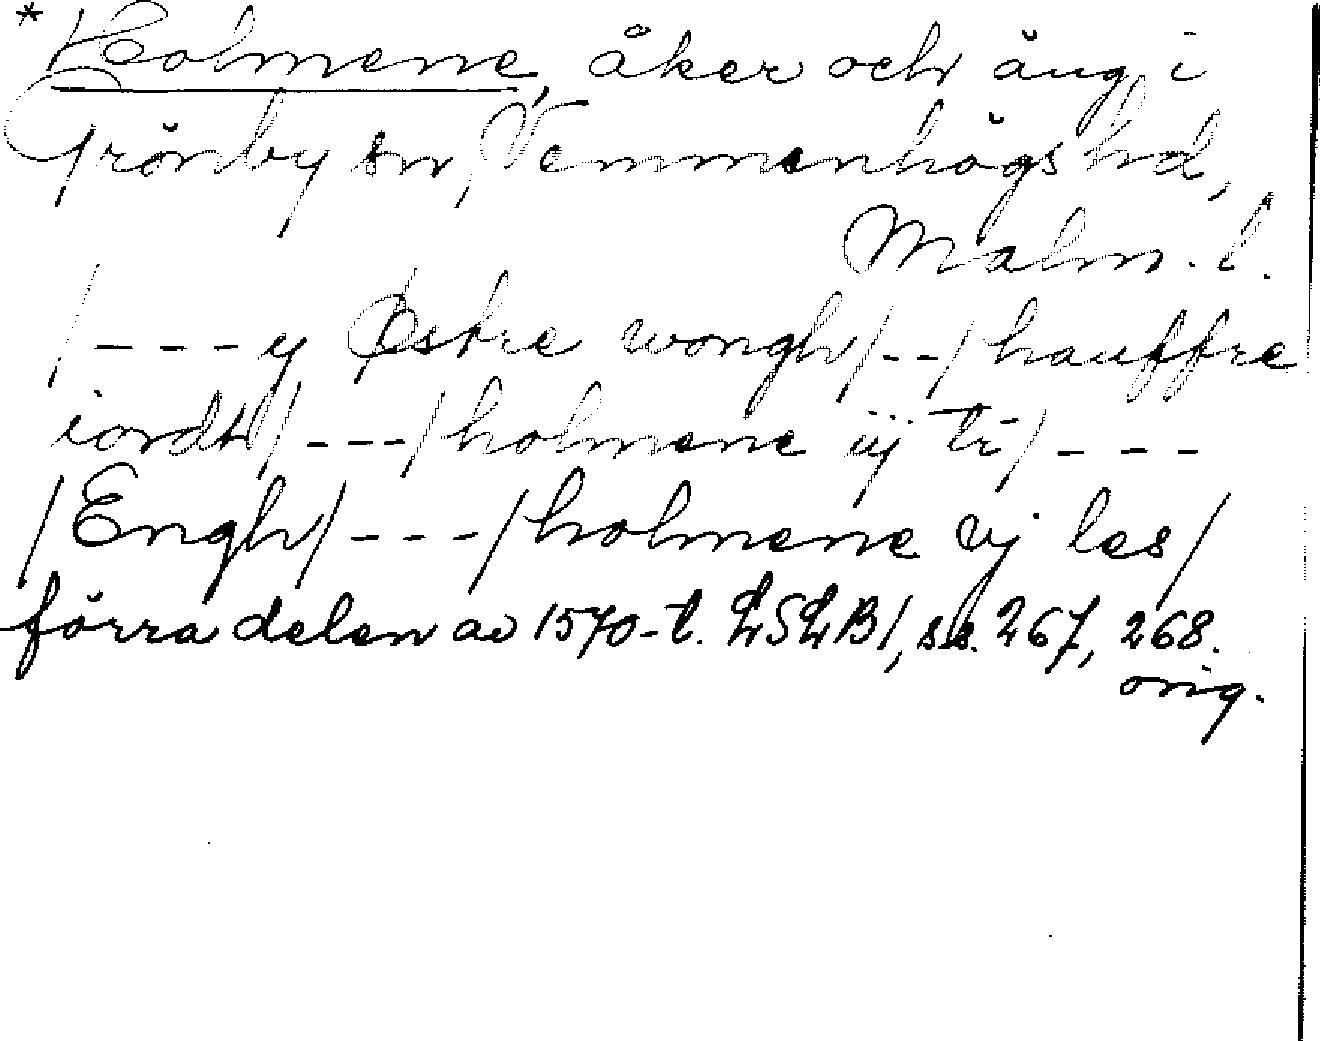 *Holmene, åker och äng i
Grönby sn, Vemmenhögs hd,
Malm. l.
/---y Østre wongh/--/hauffre
iordh/---/holmene iij tr/---
/Engh/---/holmene vj les/
förra delen av 1570-t. LSLB1, ss. 267, 268.
orig.